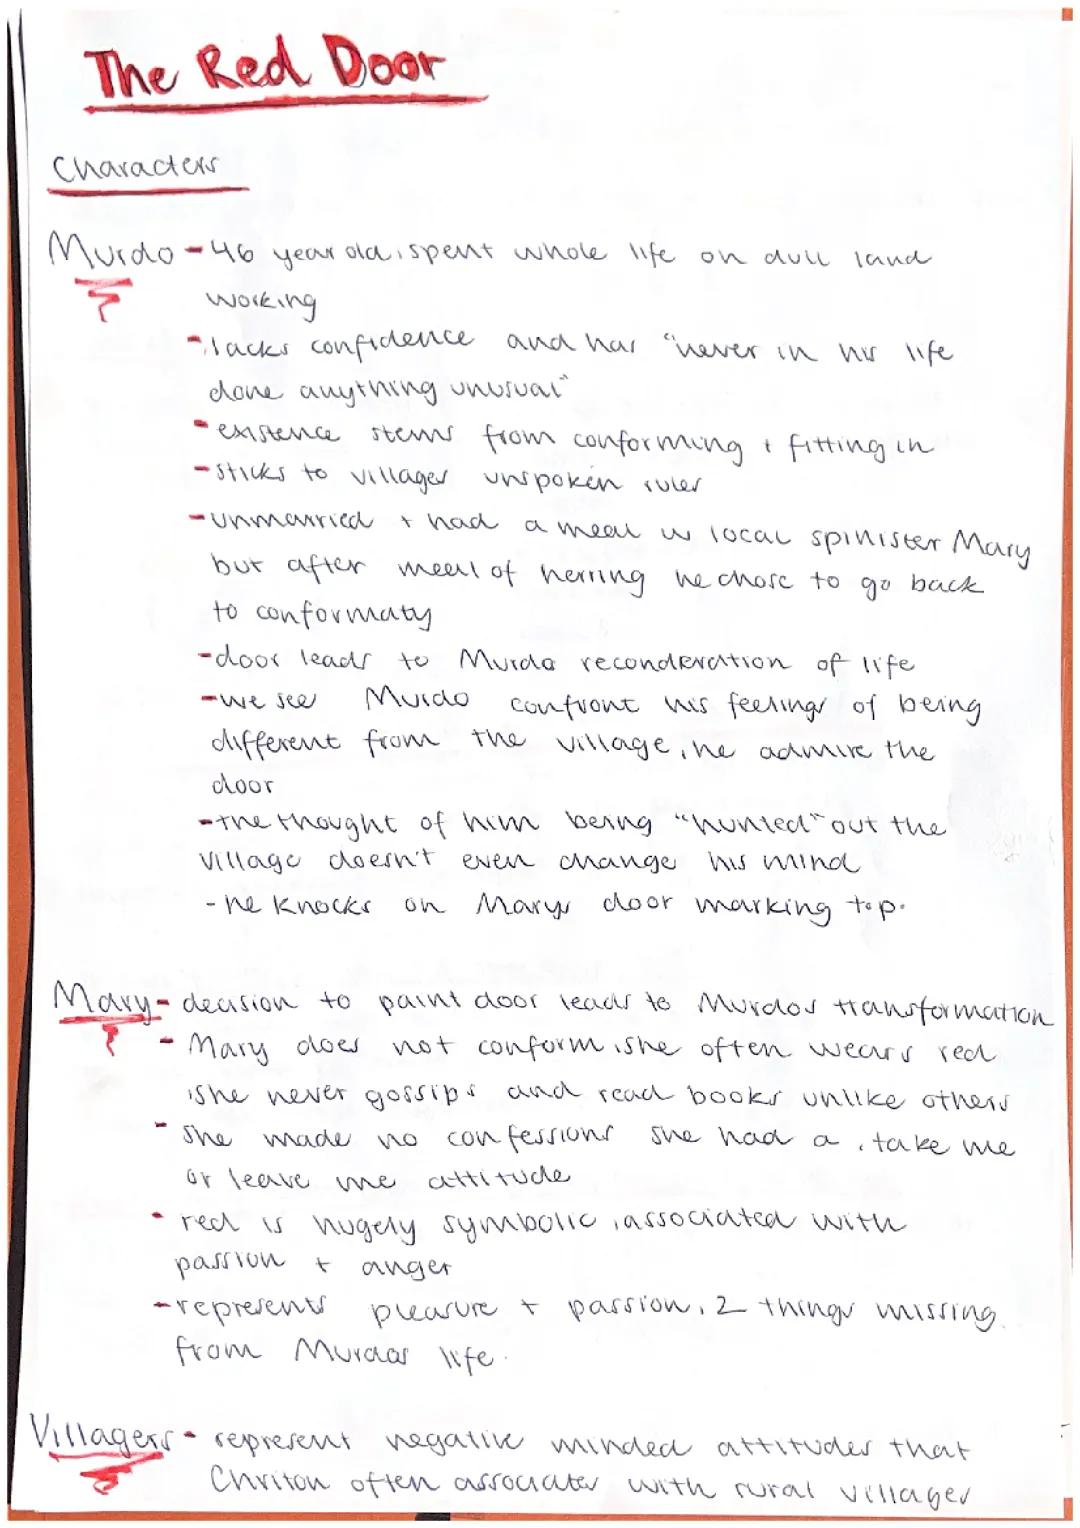 The Red Door
Characters
Murdo - 46 year old, spent whole life on dull land
working
- lacks confidence and has "never in his life
done anything unusual"
- existence stems from conforming + fitting in
- sticks to villages unspoken rules
- unmarried + had a meal w local spinister Mary
but after meal of herring he chose to go back
to conformaty
- door leads to Murdo reconderation of life
- we see Murdo confront his feelings of being
different from the village, he admire the
door
- the thought of him being "hunted" out the
village doesn't even change his mind
- he knocks on Marys door marking t.p.
Mary - decision to paint door leads to Murdos transformation
- Mary does not conform, she often wears red
, she never gossips and read books unlike others
- she made no confessions she had a , take me
or leave me attitude
- red is hugely symbolic , associated with
passion + anger
- represents pleasure + passion, 2 things missing
from Murdos life.
Villagers - represent negative minded attitudes that
Chriton often associates with rural villages